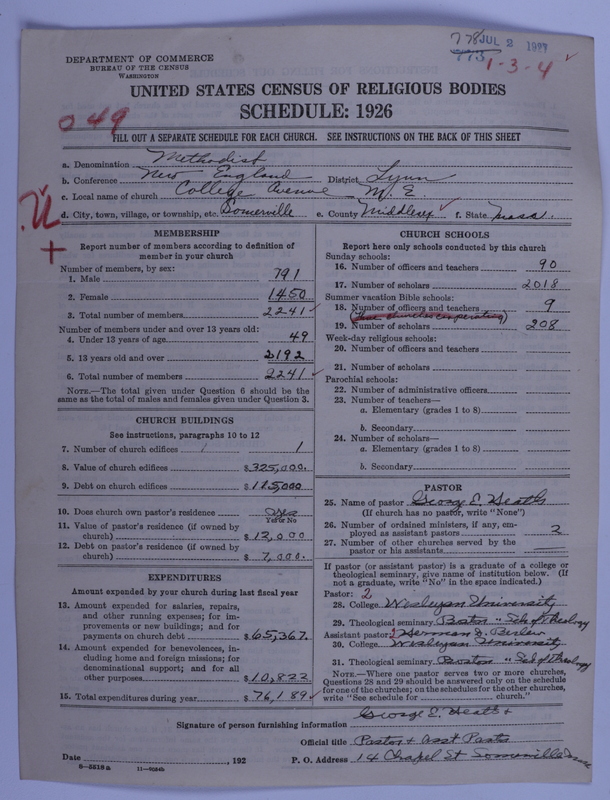 778 JUL 2 1927
773
1-3-4
DEPARTMENT OF COMMERCE
BUREAU OF THE CENSUS
WASHINGTON
UNITED STATES CENSUS OF RELIGIOUS BODIES
SCHEDULE: 1926
049
FILL OUT A SEPARATE SCHEDULE FOR EACH CHURCH. SEE INSTRUCTIONS ON THE BACK OF THIS SHEET
a. Denomination Methodist
b. Conference New England District Lynn
c. Local name of church College Avenue M. E.
d. City, town, village, or township, etc. Somerville e. County Middlesex f. State Mass.
MEMBERSHIP
Report number of members according to definition of
member in your church
Number of members, by sex:
1. Male 791
2. Female 1450
3. Total number of members 2241
Number of members under and over 13 years old:
4. Under 13 years of age 49
5. 13 years old and over 2192
6. Total number of members 2241
NOTE.—The total given under Question 6 should be the
same as the total of males and females given under Question 3.
CHURCH BUILDINGS
See instructions, paragraphs 10 to 12
7. Number of church edifices 1
8. Value of church edifices $325,000.
9. Debt on church edifices $125,000
10. Does church own pastor's residence yes
Yes or No
11. Value of pastor's residence (if owned by
church) $12,000
12. Debt on pastor's residence (if owned by
church) $7,000.
EXPENDITURES
Amount expended by your church during last fiscal year
13. Amount expended for salaries, repairs,
and other running expenses; for im-
provements or new buildings; and for
payments on church debt $65,367.
14. Amount expended for benevolences, in-
cluding home and foreign missions; for
denominational support; and for all
other purposes $10,822
15. Total expenditures during year $76,189
CHURCH SCHOOLS
Report here only schools conducted by this church
Sunday schools:
16. Number of officers and teachers 90
17. Number of scholars 2018
Summer vacation Bible schools:
18. Number of officers and teachers 9
(Three churches cooperating)
19. Number of scholars 208
Week-day religious schools:
20. Number of officers and teachers
21. Number of scholars
Parochial schools:
22. Number of administrative officers
23. Number of teachers—
a. Elementary (grades 1 to 8)
b. Secondary
24. Number of scholars—
a. Elementary (grades 1 to 8)
b. Secondary
PASTOR
25. Name of pastor George E. Heath
(If church has no pastor, write "None")
26. Number of ordained ministers, if any, em-
ployed as assistant pastors 2
27. Number of other churches served by the
pastor or his assistants
If pastor (or assistant pastor) is a graduate of a college or
theological seminary, give name of institution below. (If
not a graduate, write "No" in the space indicated.)
Pastor: 2
28. College Wesleyan University
29. Theological seminary Boston " Sch of Theology
Assistant pastor: Herman J.
30. College Wesleyan University
31. Theological seminary Boston " Sch of Theology
NOTE.—Where one pastor serves two or more churches,
Questions 28 and 29 should be answered only on the schedule
for one of the churches; on the schedules for the other churches,
write "See schedule for church."
Signature of person furnishing information George E. Heath +
Official title Pastor + Asst Pastor
Date , 192 P. O. Address 14 Chapel St Somerville Mass
8—5518 a 11—9084b